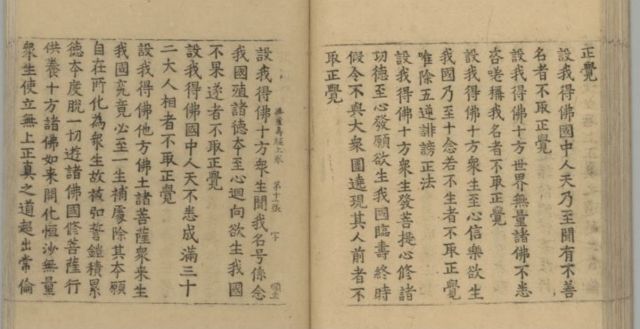 正覺
設我得佛國中人天乃至聞有不善
名者不取正覺
設我得佛十方世界無量諸佛不悉
咨嗟稱我名者不取正覺
設我得佛十方衆生至心信樂欲生
我國乃至十念若不生者不取正覺
唯除五逆誹謗正法
設我得佛十方衆生發菩提心修諸
功德至心發願欲生我國臨壽終時
假令不與大衆圍遶現其人前者不
取正覺
設我得佛十方衆生聞我名号係念
我國殖諸德本至心迴向欲生我國
不果遂者不取正覺
設我得佛國中人天不悉成滿三十
二大人相者不取正覺
設我得佛他方佛土諸菩薩衆來生
我國究竟必至一生補處除其本願
自在所化為衆生故被弘誓鎧積累
德本度脫一切遊諸佛國修菩薩行
供養十方諸佛如来開化恒沙無量
衆生使立無上正真之道超出常倫